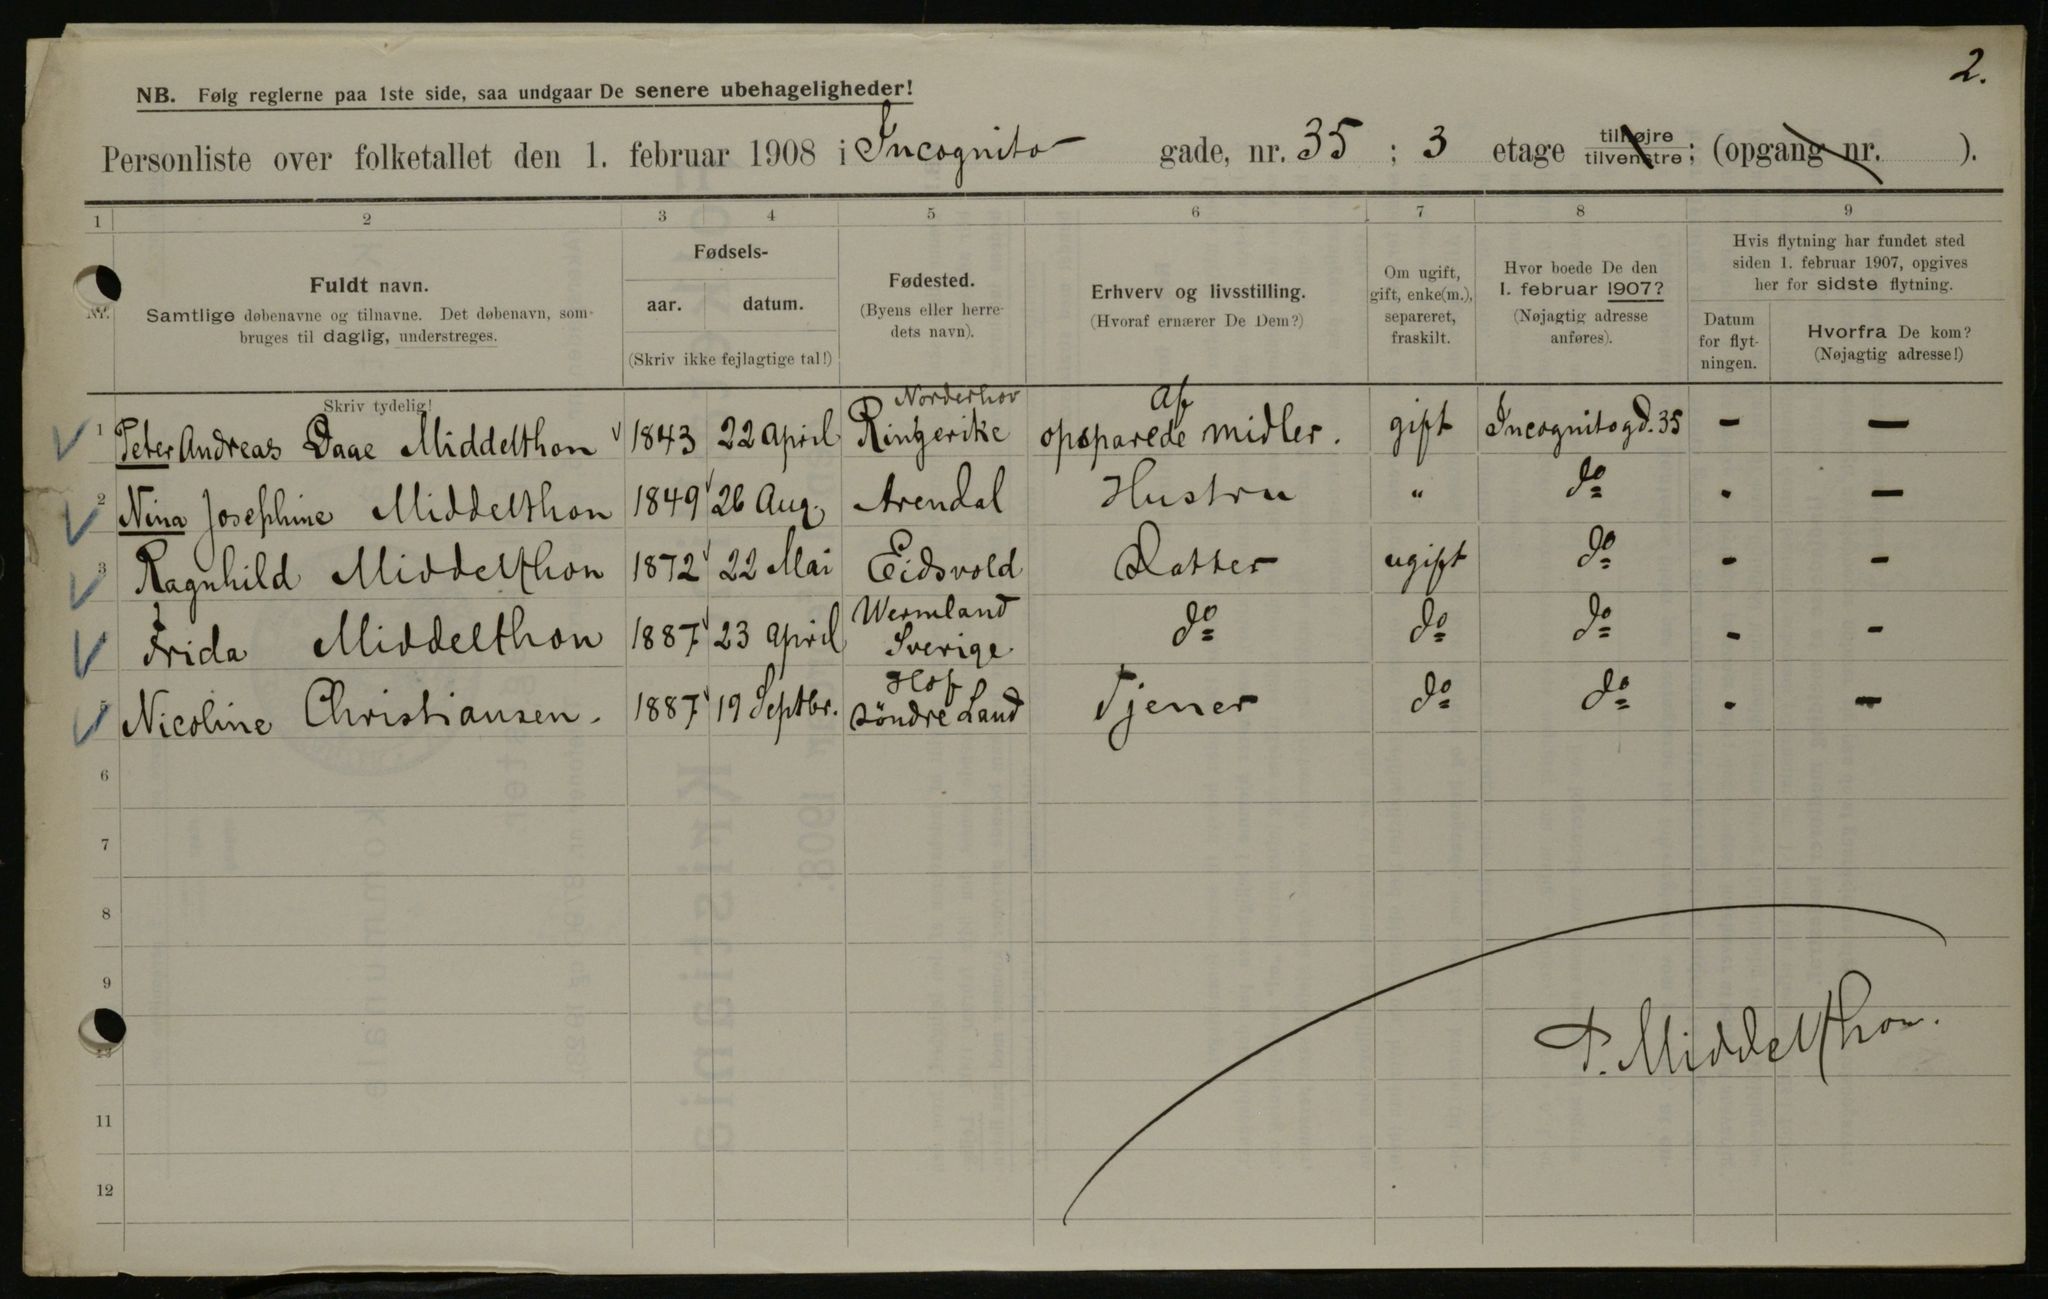 2.
NB. Følg reglerne paa 1ste side, saa undgaar De senere ubehageligheder!
Personliste over folketallet den 1. februar 1908 i Incognito gade, nr. 35 ; 3 etage tilhøjre tilvenstre ; (opgang nr. ).
1 2 3 4 5 6 7 8 9
Nr.
Fuldt navn.
Samtlige døbenavne og tilnavne. Det døbenavn, som
bruges til daglig, understreges.
Skriv tydelig!
Fødsels-
aar. datum.
(Skriv ikke fejlagtige tal!)
Fødested.
(Byens eller herre-
dets navn).
Erhverv og livsstilling.
(Hvoraf ernærer De Dem?)
Om ugift,
gift, enke(m.),
separeret,
fraskilt.
Hvor boede De den
1. februar 1907?
(Nøjagtig adresse
anføres).
Hvis flytning har fundet sted
siden 1. februar 1907, opgives
her for sidste flytning.
Datum
for flyt-
ningen.
Hvorfra De kom?
(Nøjagtig adresse!)
Norderhov Af
1 Peter Andreas Daae Middelthon 1843 22 April Ringerike opsparede midler. gift Incognitogd. 35 - -
2 Nina Josephine Middelthon 1849 26 Aug. Arendal Hustru " do - -
3 Ragnhild Middelthon 1872 22 Mai Eidsvold Datter ugift do - -
Wermland
4 Frida Middelthon 1887 23 April Sverige do do do - -
Hof
5 Nicoline Christiansen. 1887 19 Septbr. Söndre Land Tjener do do - -
6
7
8
9
10
11
12
P. Middelthon.